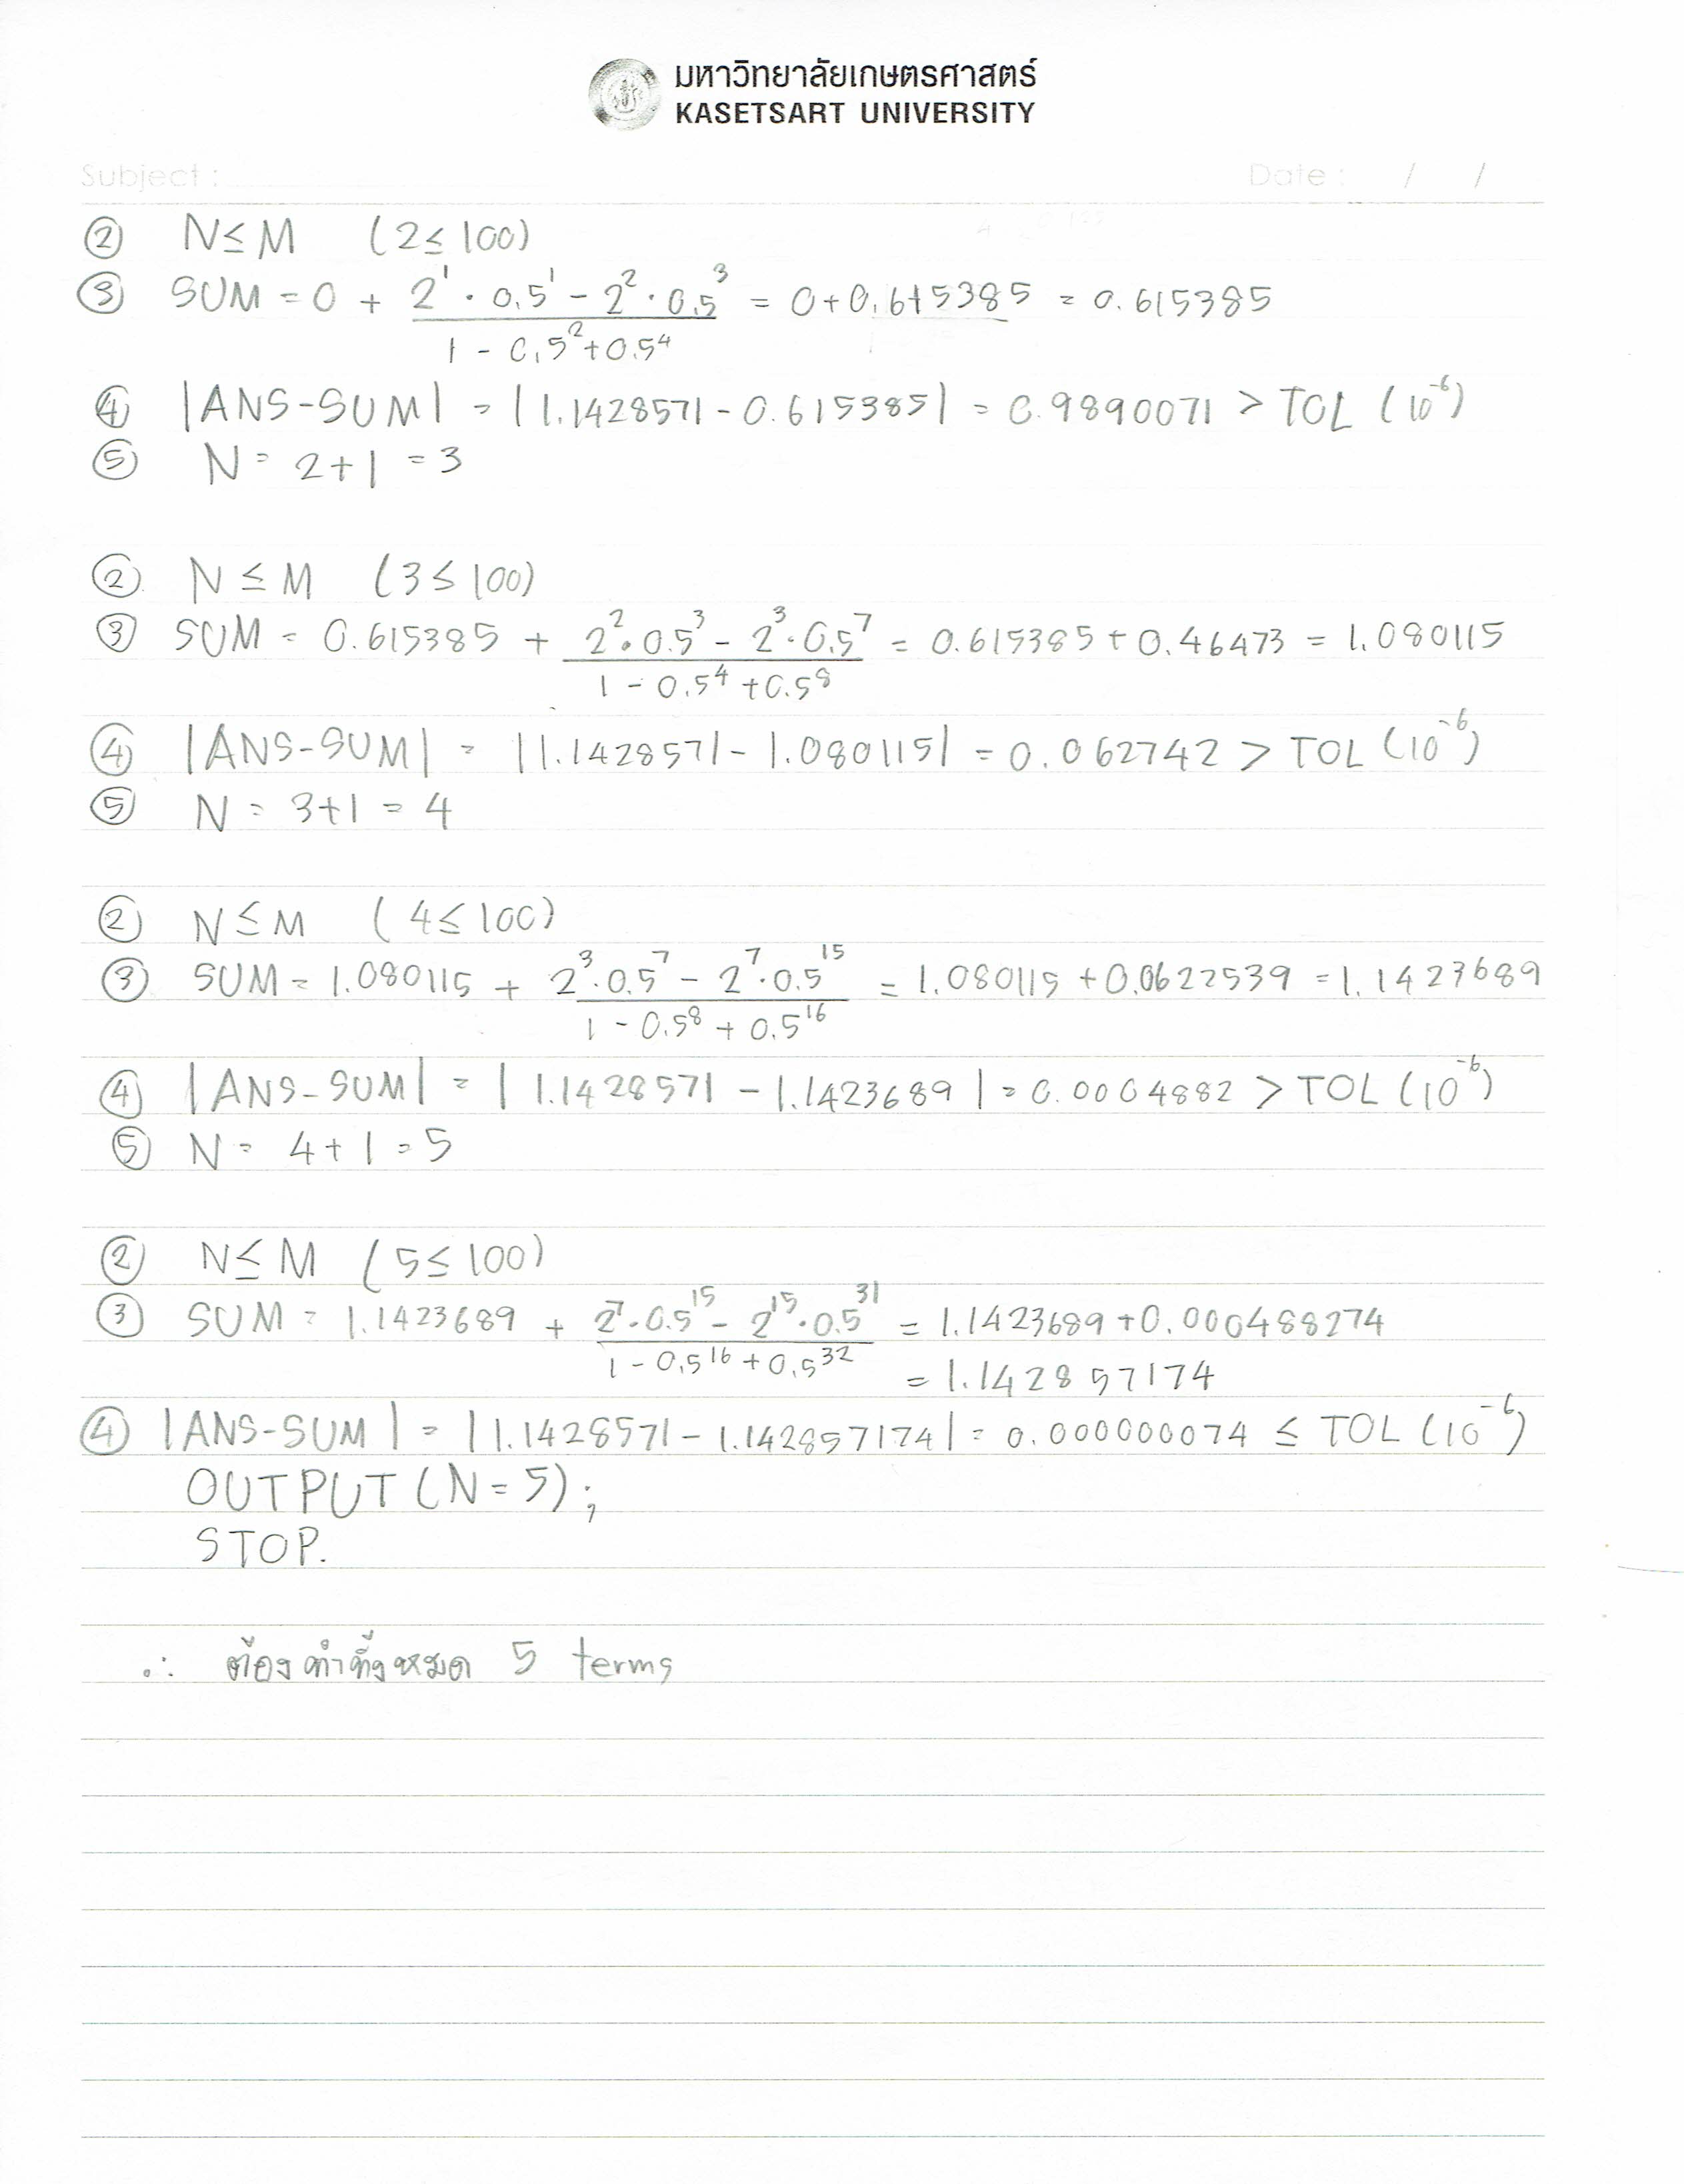 มหาวิทยาลัยเกษตรศาสตร์
KASETSART UNIVERSITY
Subject : Date : / /
② N ≤ M (2 ≤ 100)
③ SUM = 0 + (2^1 · 0.5^1 - 2^2 · 0.5^3) / (1 - 0.5^2 + 0.5^4) = 0 + 0.615385 = 0.615385
④ |ANS-SUM| = |1.1428571 - 0.615385| = 0.9890071 > TOL (10^-6)
⑤ N = 2+1 = 3
② N ≤ M (3 ≤ 100)
③ SUM = 0.615385 + (2^2 · 0.5^3 - 2^3 · 0.5^7) / (1 - 0.5^4 + 0.5^8) = 0.615385 + 0.46473 = 1.080115
④ |ANS-SUM| = |1.1428571 - 1.080115| = 0.062742 > TOL (10^-6)
⑤ N = 3+1 = 4
② N ≤ M (4 ≤ 100)
③ SUM = 1.080115 + (2^3 · 0.5^7 - 2^7 · 0.5^15) / (1 - 0.5^8 + 0.5^16) = 1.080115 + 0.0622539 = 1.1423689
④ |ANS-SUM| = |1.1428571 - 1.1423689| = 0.0004882 > TOL (10^-6)
⑤ N = 4+1 = 5
② N ≤ M (5 ≤ 100)
③ SUM = 1.1423689 + (2^7 · 0.5^15 - 2^15 · 0.5^31) / (1 - 0.5^16 + 0.5^32) = 1.1423689 + 0.000488274
= 1.142857174
④ |ANS-SUM| = |1.1428571 - 1.142857174| = 0.000000074 ≤ TOL (10^-6)
OUTPUT (N = 5);
STOP.
∴ ต้องทำทั้งหมด 5 terms